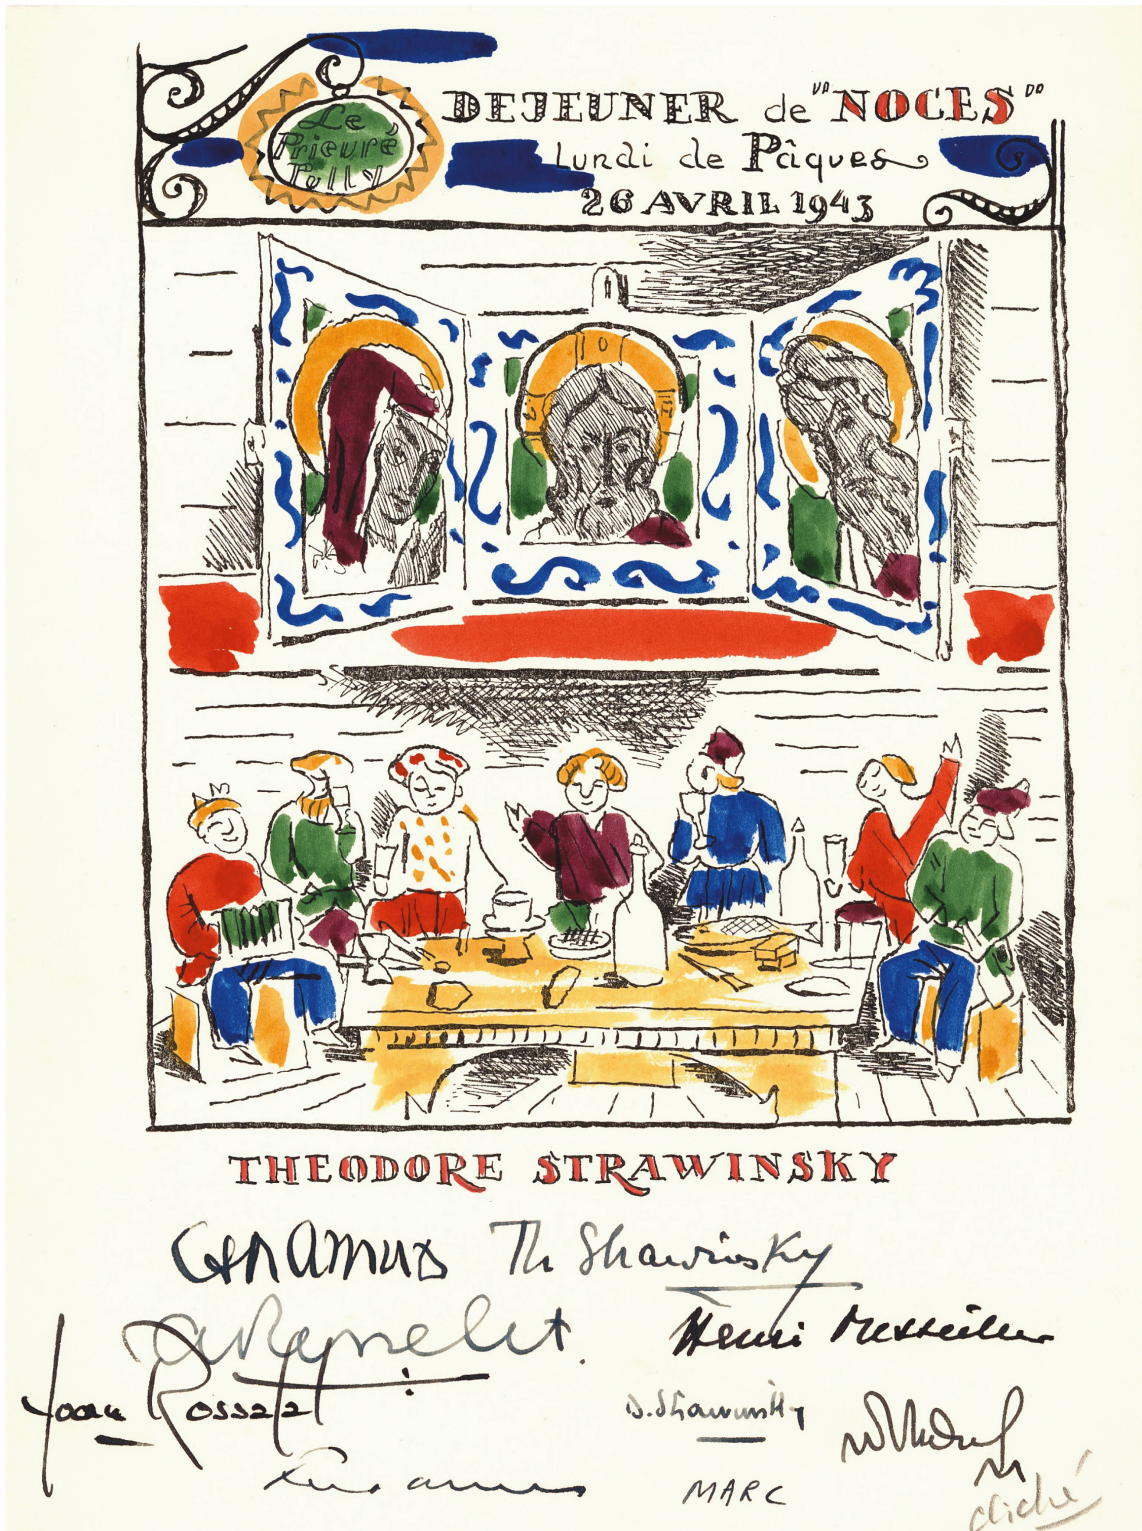 Le
Prieuré
Pully
DEJEUNER de "NOCES"
Lundi de Pâques
26 AVRIL 1943
THEODORE STRAWINSKY
C F Ramuz
Th Strawinsky
Henri
Rossel
D. Strawinsky
MARC
cliché